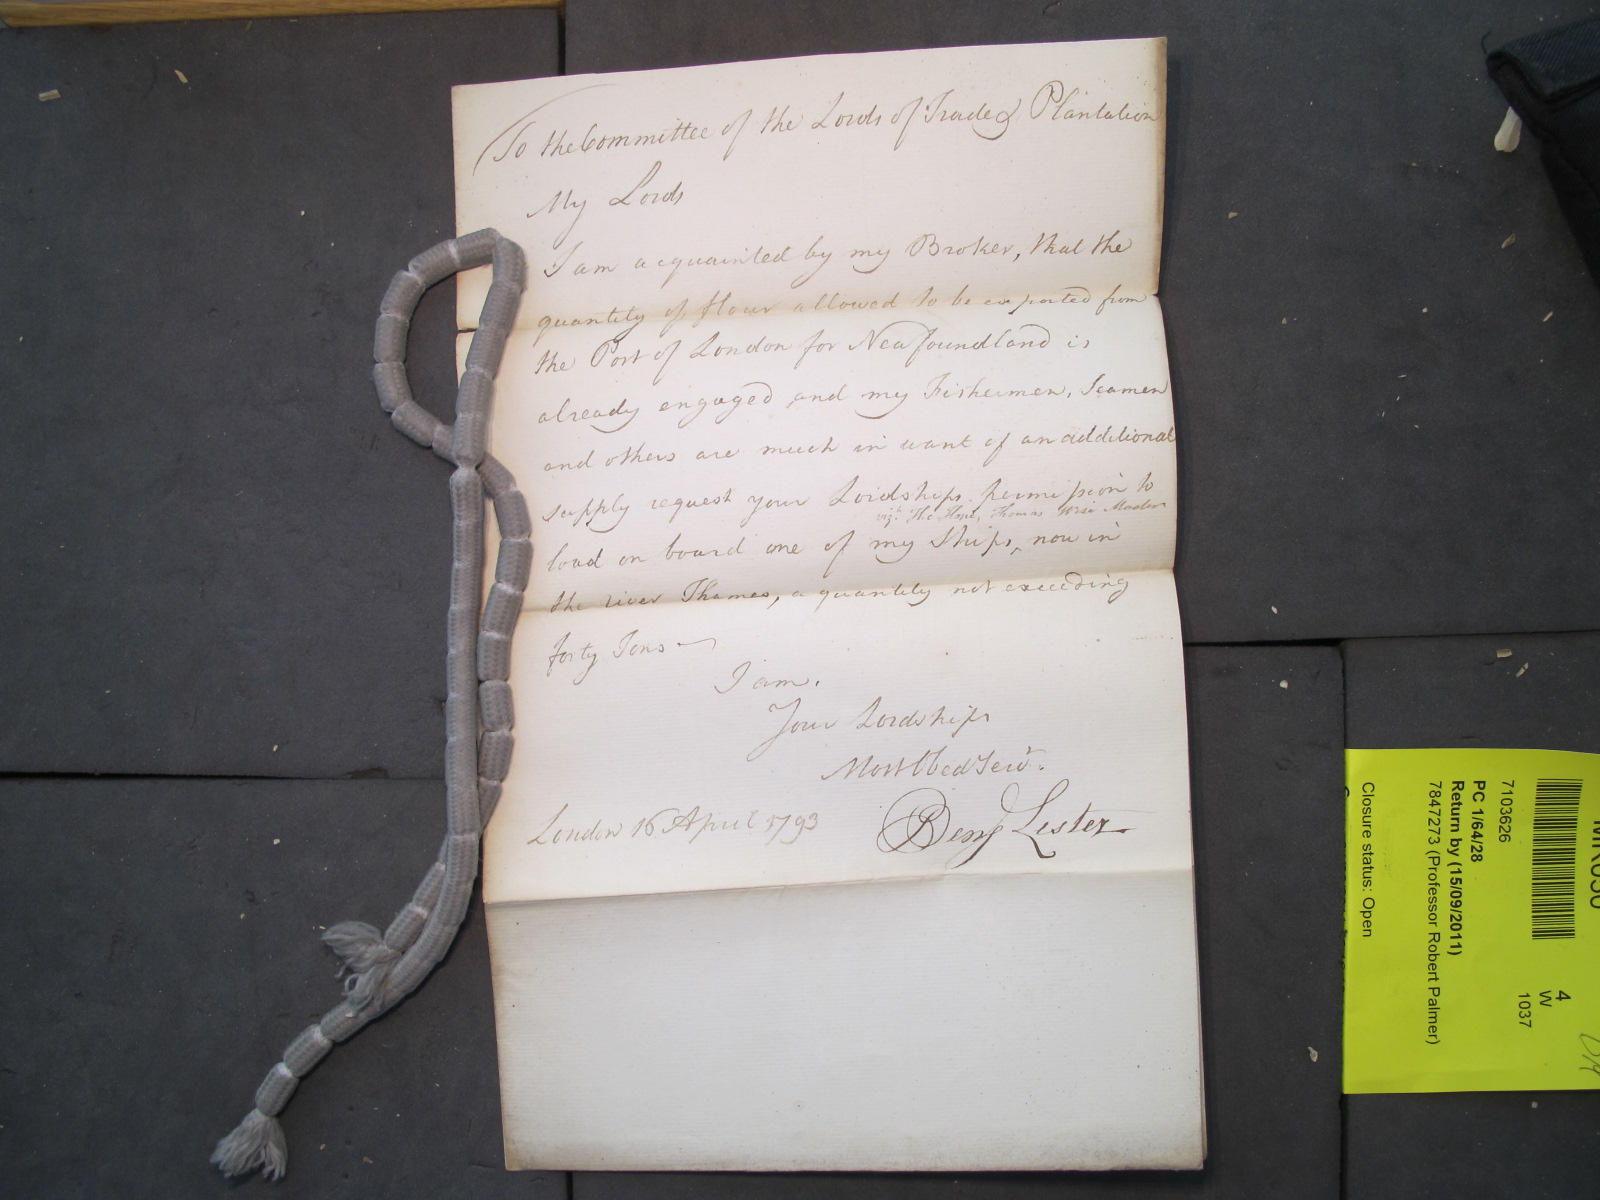 To the Committee of the Lords of Trade & Plantation
My Lords
I am acquainted by my Broker, that the
quantity of flour allowed to be exported from
the Port of London for Newfoundland is
already engaged and my Fishermen, Seamen
and others are much in want of an additional
supply request your Lordships permission to
vizt. The Hope, Thomas Wise Master
load on board one of my Ships, now in
the river Thames, a quantity not exceeding
forty Tons
I am.
Your Lordships
Most Obed Servt.
London 16 April 1793
Benj Lester
7103626
PC 1/64/28
Return by (15/09/2011)
7847273 (Professor Robert Palmer)
Closure status: Open
4
W
1037